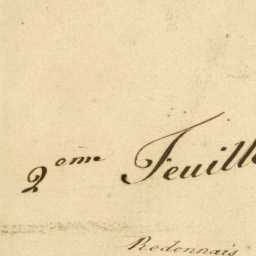 2eme Feuill
Redennais